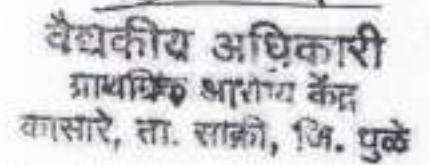 वैद्यकीय अधिकारी
प्राथमिक आरोग्य केंद्र
कासारे, ता. साक्री, जि. धुळे